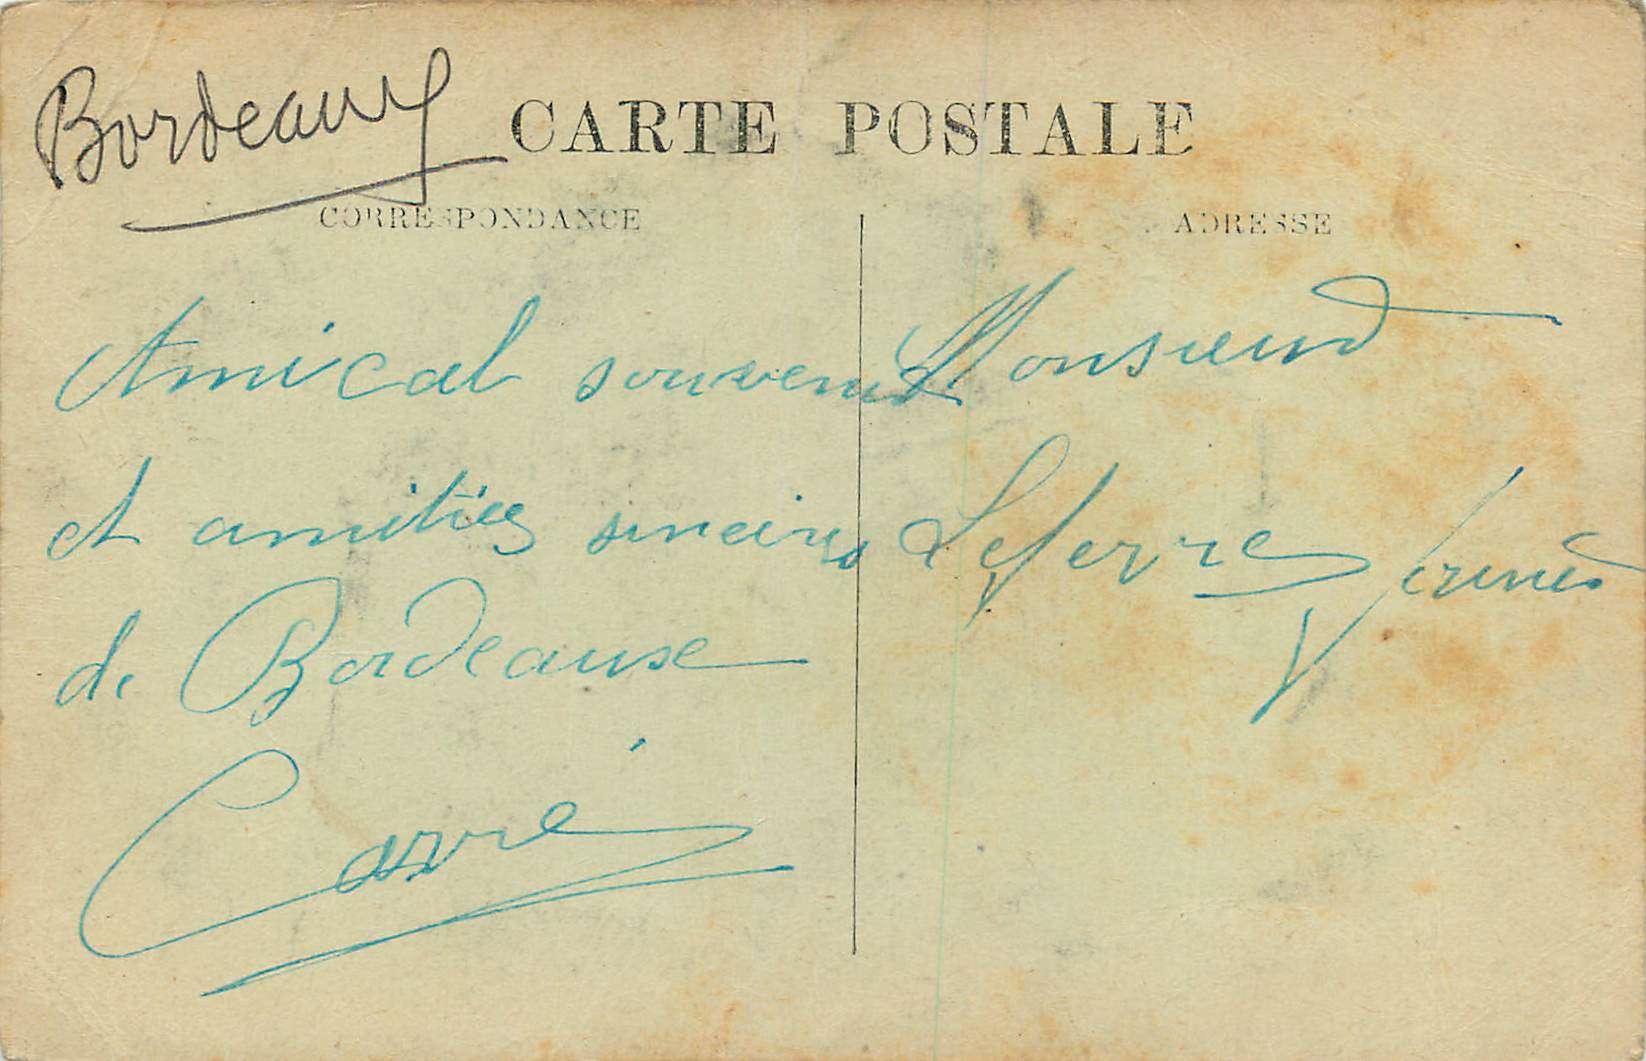 Bordeaux
CARTE POSTALE
CORRESPONDANCE
ADRESSE
Amical souvenir
et amitiés sincères
de Bordeaux
Carré
Monsieur
Lefevre